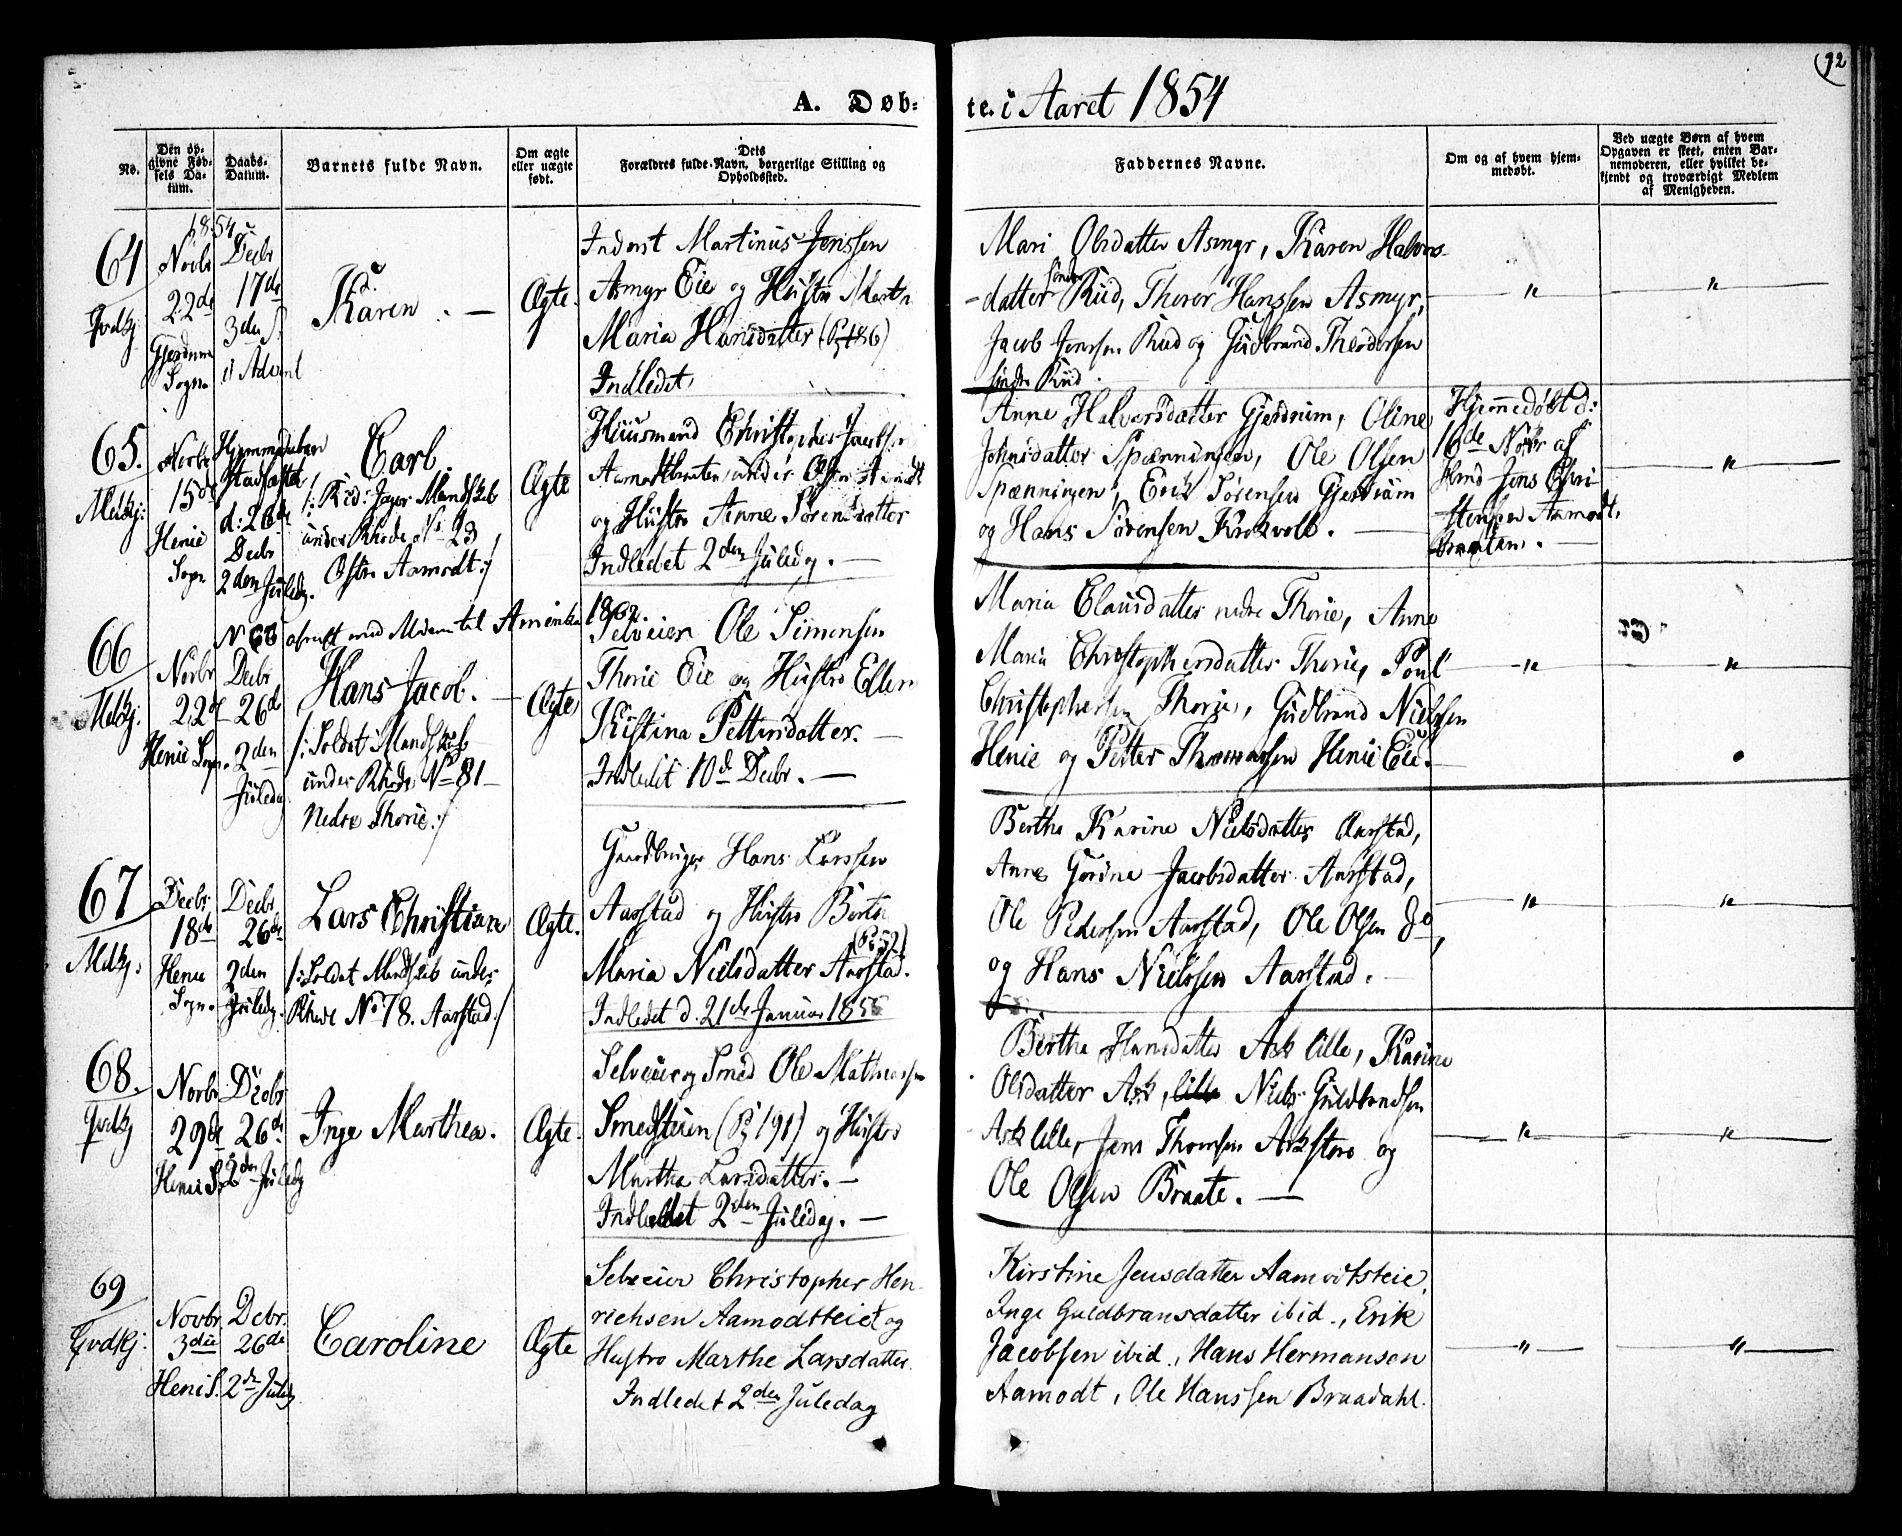 92
A. Døb-
te. i Aaret 1854
No.
Den op-
givne Fød-
sels Da-
tum.
Daabs-
Datum.
Barnets fulde Navn.
Om ægte
eller uægte
født.
Dets
Forældres fulde Navn, borgerlige Stilling og
Opholdssted.
Faddernes Navne.
Om og af hvem hjem-
medøbt.
Ved uægte Børn af hvem
Opgaven er skeet, enten Bar-
nemoderen, eller hvilket be-
kjendt og troværdigt Medlem
af Menigheden.
64
Qvdkj
1854
Novbr
22de
Gjerdrum
Sogn
Decbr
17de
3die S.
i Advent
Karen. —
Ægte.
Inderst Martinus Jenssen
Asmyr Eie og Hustro Marth
Maria Hansdatter
Indledet,
Mari Olsdatter Asmyr, Karen Halvors-
-datter søndre Rud, Thorer Hanssen Asmyr,
Jacob Jenssen Rud og Gudbrand Theodorsen
søndre Rud.
"
"
65.
Mdkj:
Novbr
15de
Henie
Sogn
Hjemmedaaben
Stadfæstet
d: 26de
Decbr
2den Juledg.
Carl.
/: Red: Jæger Mandskab
under Rhode No 23
Østre Aamodt :/
Ægte
Huusmand Christopher Jacobsen
Aamodtbraaten under Østre Aamodt
og Hustro Anne Sørensdatter
Indledet 2den Juledg. —
Anne Halvorsdatter Gjerdrum, Oline
Johnsdatter Spænningen, Ole Olsen
Spænningen, Erik Sørensen Gjerdrum
og Hans Sørensen Krokvold. —
Hjemmedøbt d:
16de Novbr af
Hmd Jens Chri-
stensen Aamodt-
braaten. —
"
66
Mdkj:
N 66 afreist med Moderen til Amerika 1862.
Novbr
22de
Henie Sogn.
Decbr
26de
2den
Juledag
Hans Jacob. —
/: Soldat Mandskab
under Rhode No 81 —
Nedre Thorie :/
Ægte
Selveier Ole Simensen
Thorie Eie og Hustro Ellen
Kristina Pettersdatter. —
Indledet 10de Decbr. —
Maria Clausdatter nedre Thorie, Anne
Maria Christophersdatter Thorie, Poul
Christophersen Thorie, Gudbrand Nielssen
Henie og Petter Thomassen Henie Eie.
"
"
67
Mdkj:
Decbr
18de
Henie
Sogn.
Decbr
26de
2den
Juledg.
Lars Christian
/: Soldat Mandskab under
Rhode No 78. Aarstad :/
Ægte.
Gaardbruger Hans Larssen
Aarstad og Hustro Berthe
Maria Nielsdatter Aarstad.
Indledet d. 21de Januar 1855
Berthe Karine Nielsdatter Aarstad,
Anne Gorine Jacobsdatter Aarstad,
Ole Pedersen Aarstad, Ole Olsen Do,
og Hans Nielssen Aarstad. —
"
"
68.
Qvdkj
Novbr
29de
Henie S.
Decbr
26de
2den Juledg
Inge Marthea.
Ægte.
Selveier og Smed Ole Mathiessen
Smedsteien (Pg 191) og Hustro
Marthe Larsdatter. —
Indledet 2den Juledag. —
Berthe Hansdatter Ask lille, Karine
Olsdatter Ask, lille Niels Guldbrandsen
Ask lille, Jens Thomsen Ask store og
Ole Olsen Braate. —
"
"
69
Qvdkj:
Novbr.
3die
Heni S.
Debr.
26de
2de Juledg
Caroline
Ægte
Selveier Christopher Hen-
richsen Aamodtteiet og
Hustro Marthe Larsdatter.
Indledet 2den Juledag
Kirstine Jensdatter Aamodtseie,
Inge Guldbransdatter ibid., Erik
Jacobsen ibid., Hans Hermansen
Aamodt, Ole Hanssen Braadahl.
"
"